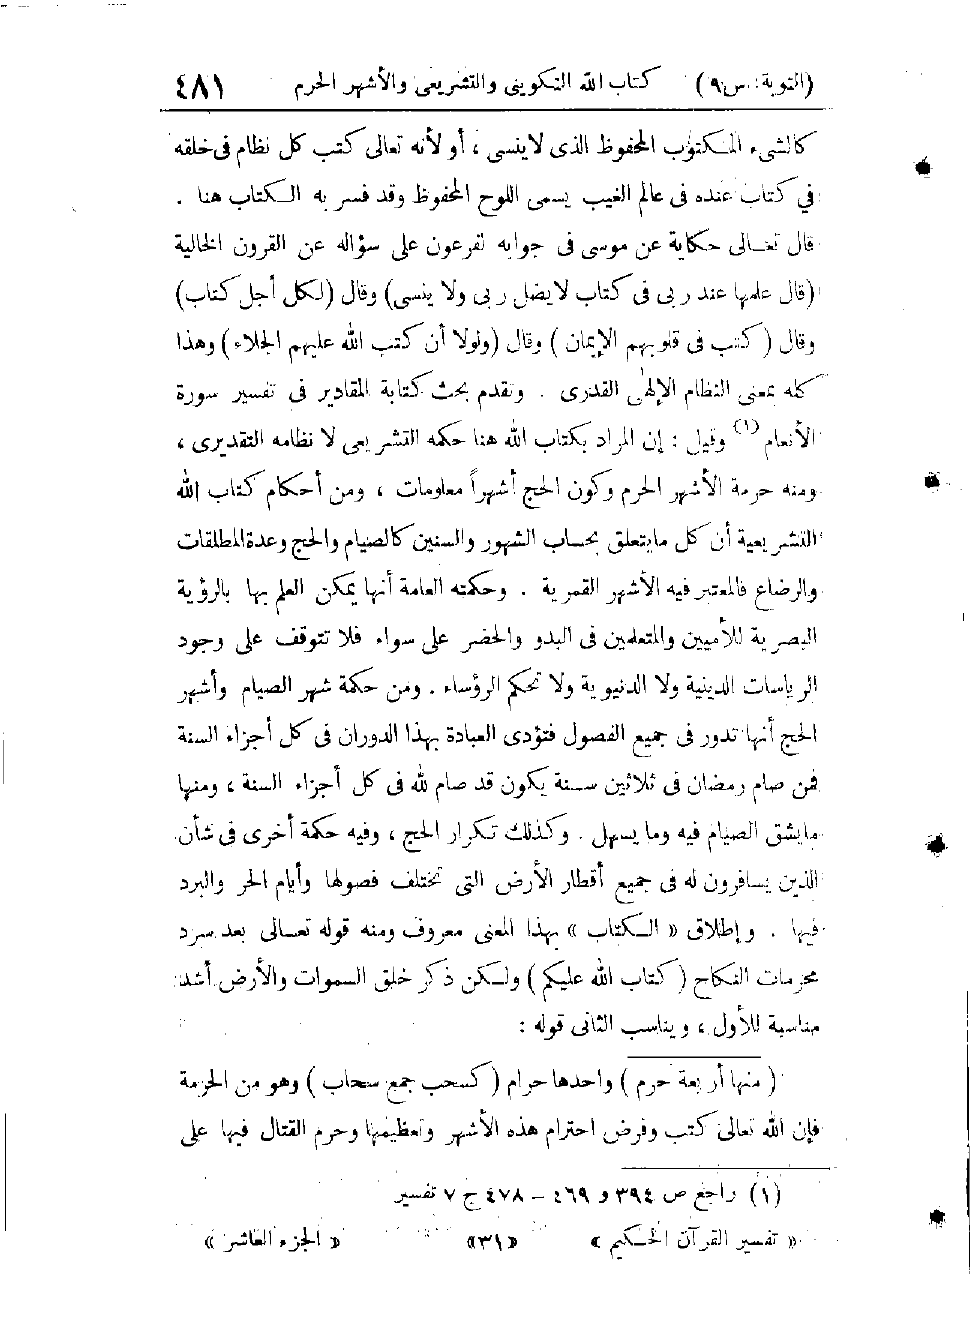 (التوبة: س٩) كتاب الله التكوينى والتشريعى والأشهر الحرم ٤٨١
كالشىء المكتوب المحفوظ الذى لا ينسى ، أو لأنه تعالى كتب كل نظام فى خلقه
في كتاب عنده فى عالم الغيب يسمى اللوح المحفوظ وقد فسر به الكتاب هنا .
قال تعالى حكاية عن موسى فى جوابه لفرعون على سؤاله عن القرون الخالية
(قال علمها عند ربى فى كتاب لا يضل ربى ولا ينسى) وقال (لكل أجل كتاب)
وقال (كتب فى قلوبهم الإيمان) وقال (ولولا أن كتب الله عليهم الجلاء) وهذا
كله بمعنى النظام الإلهى القدرى . وتقدم بحث كتابة المقادير فى تفسير سورة
الأنعام (١) وقيل : إن المراد بكتاب الله هنا حكمه التشريعى لا نظامه التقديرى ،
ومنه حرمة الأشهر الحرم وكون الحج أشهراً معلومات ، ومن أحكام كتاب الله
التشريعية أن كل ما يتعلق بحساب الشهور والسنين كالصيام والحج وعدة المطلقات
والرضاع فالمعتبر فيه الأشهر القمرية . وحكمته العامة أنها يمكن العلم بها بالرؤية
البصرية للأميين والمتعلمين فى البدو والحضر على سواء فلا تتوقف على وجود
الرياسات الدينية ولا الدنيوية ولا تحكم الرؤساء . ومن حكمة شهر الصيام وأشهر
الحج أنها تدور فى جميع الفصول فتؤدى العبادة بهذا الدوران فى كل أجزاء السنة
فمن صام رمضان فى ثلاثين سنة يكون قد صام لله فى كل أجزاء السنة ، ومنها
ما يشق الصيام فيه وما يسهل . وكذلك تكرار الحج ، وفيه حكمة أخرى فى شأن
الذين يسافرون له فى جميع أقطار الأرض التى تختلف فصولها وأيام الحر والبرد
فيها . وإطلاق « الكتاب » بهذا المعنى معروف ومنه قوله تعالى بعد سرد
محرمات النكاح (كتاب الله عليكم) ولكن ذكر خلق السموات والأرض أشد
مناسبة للأول ، ويناسب الثانى قوله :
(منها أربعة حرم) واحدها حرام (كسحب جمع سحاب) وهو من الحرمة
فإن الله تعالى كتب وفرض احترام هذه الأشهر وتعظيمها وحرم القتال فيها على
(١) راجع ص ٣٩٤ و ٤٦٩ – ٤٧٨ ج ٧ تفسير
« تفسير القرآن الحكيم » «٣١» « الجزء العاشر »